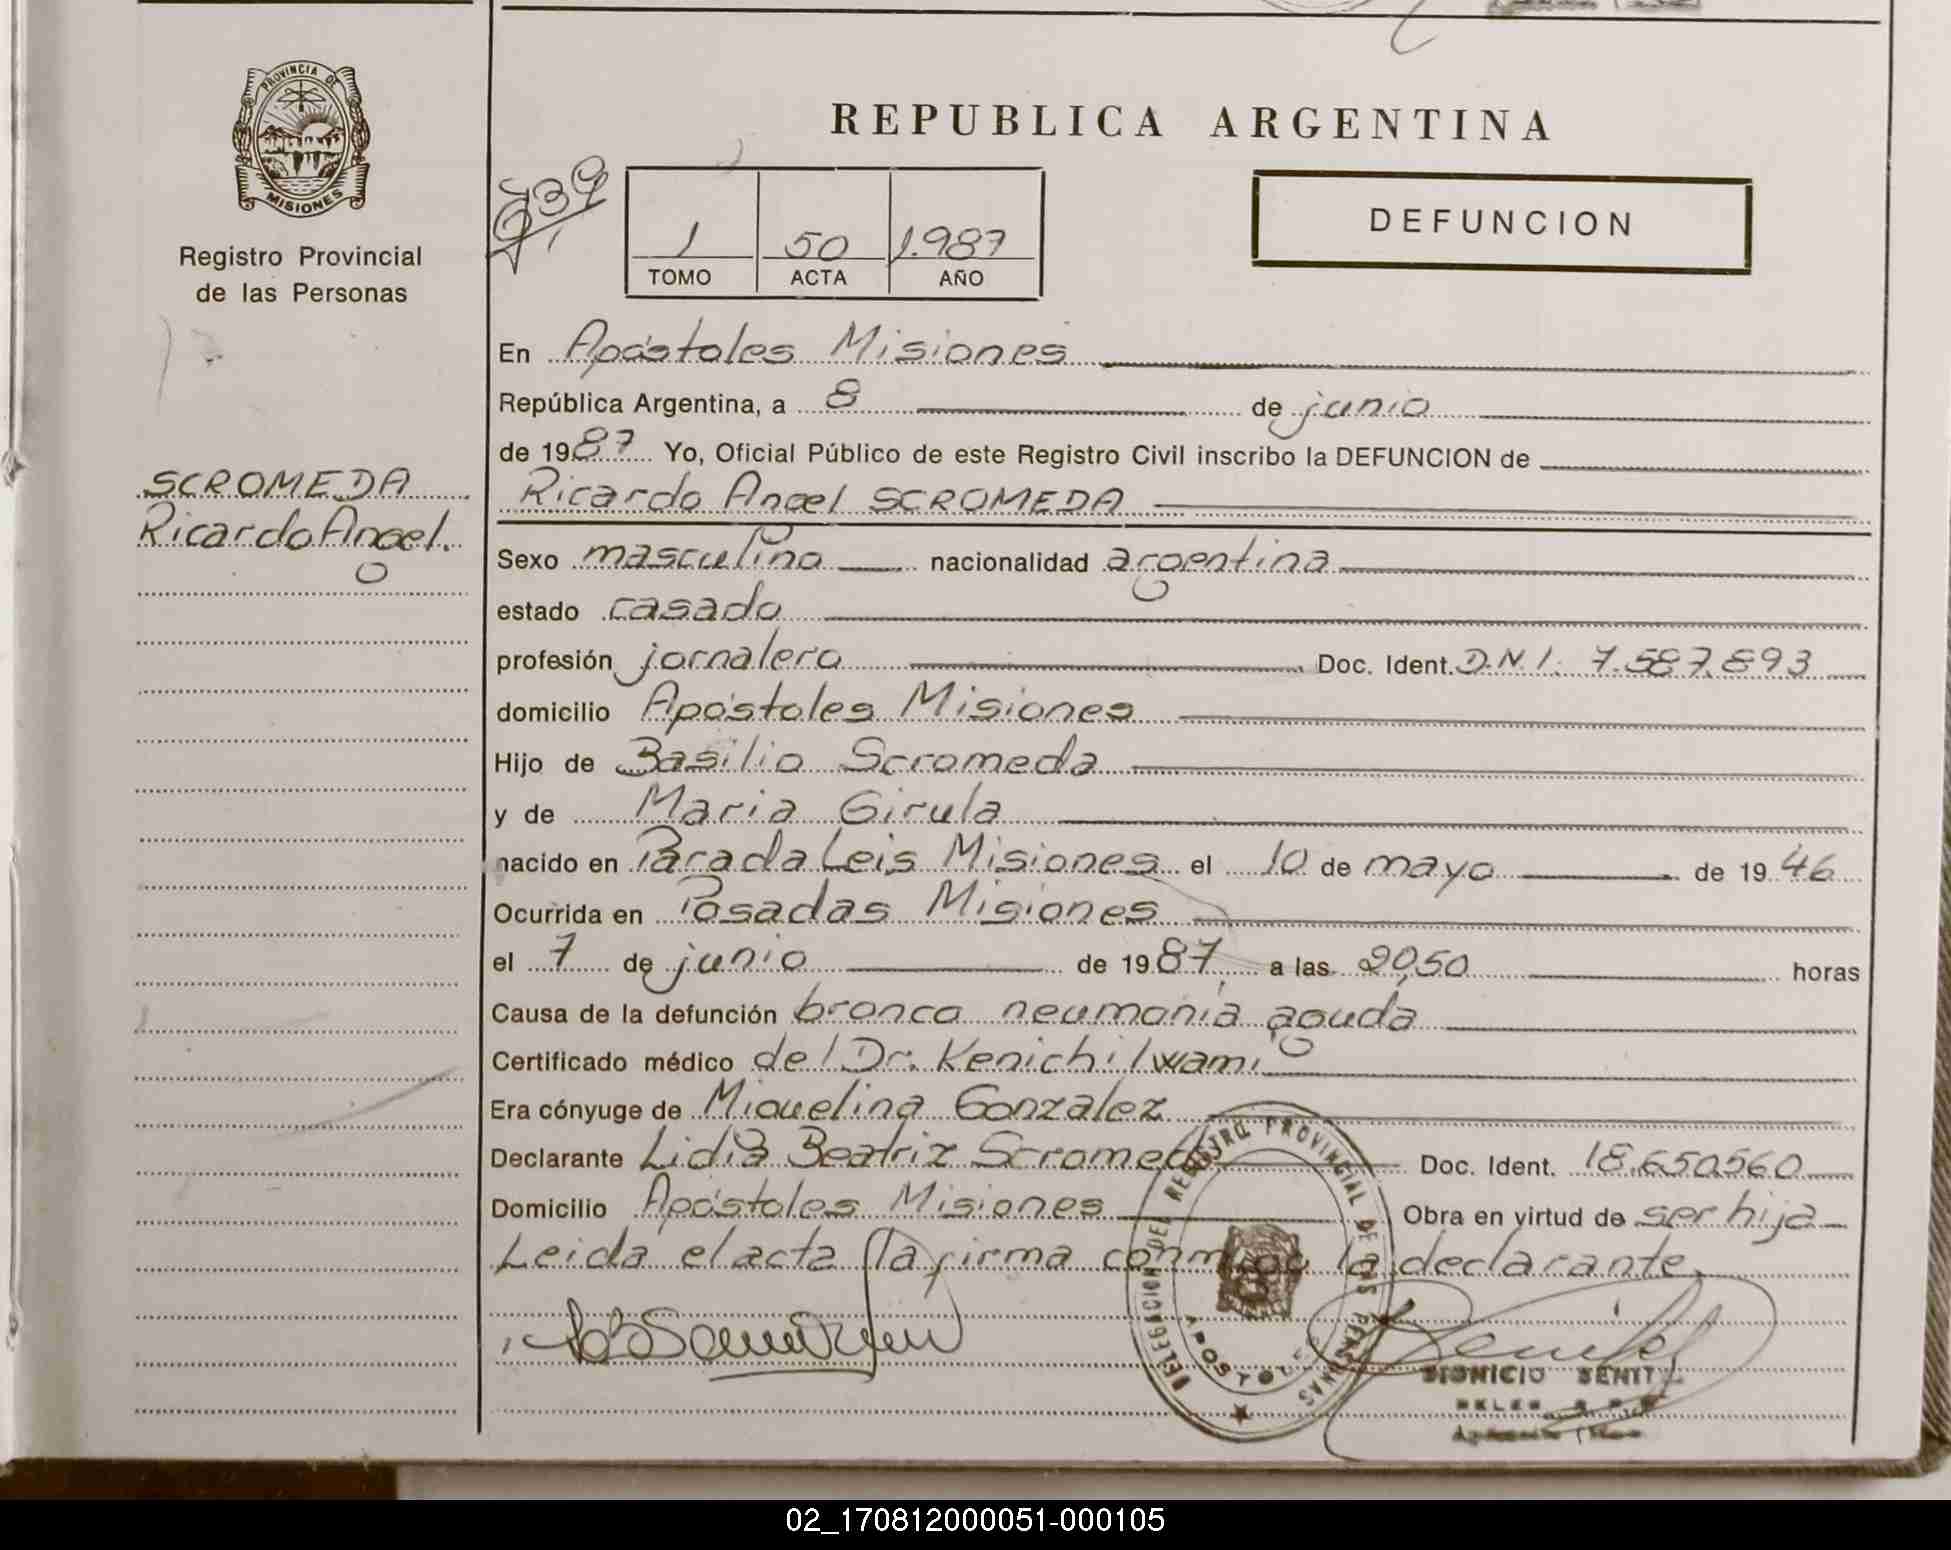 PROVINCIA DE
MISIONES
Registro Provincial
de las Personas
SCROMEDA
Ricardo Angel.
REPUBLICA ARGENTINA
739
1 50 1.987
TOMO ACTA AÑO
DEFUNCION
En Apóstoles Misiones
República Argentina, a 8 de junio
de 1987 Yo, Oficial Público de este Registro Civil inscribo la DEFUNCION de
Ricardo Angel SCROMEDA
Sexo masculino nacionalidad argentina
estado casado
profesión jornalero Doc. Ident. D.N.I. 7.587.893
domicilio Apóstoles Misiones
Hijo de Basilio Scromeda
y de Maria Girula
nacido en Parada Leis Misiones el 10 de mayo de 1946
Ocurrida en Posadas Misiones
el 7 de junio de 1987 a las 20,50 horas
Causa de la defunción bronco neumonia aguda
Certificado médico del Dr. Kenichi Iwami
Era cónyuge de Miquelina Gonzalez
Declarante Lidia Beatriz Scromeda Doc. Ident. 18.650.560
Domicilio Apóstoles Misiones Obra en virtud de ser hija
Leida el acta la firma conmigo la declarante.
DELEGACION DEL REGISTRO PROVINCIAL DE LAS PERSONAS
APOSTOLES
DIONICIO
02_170812000051-000105